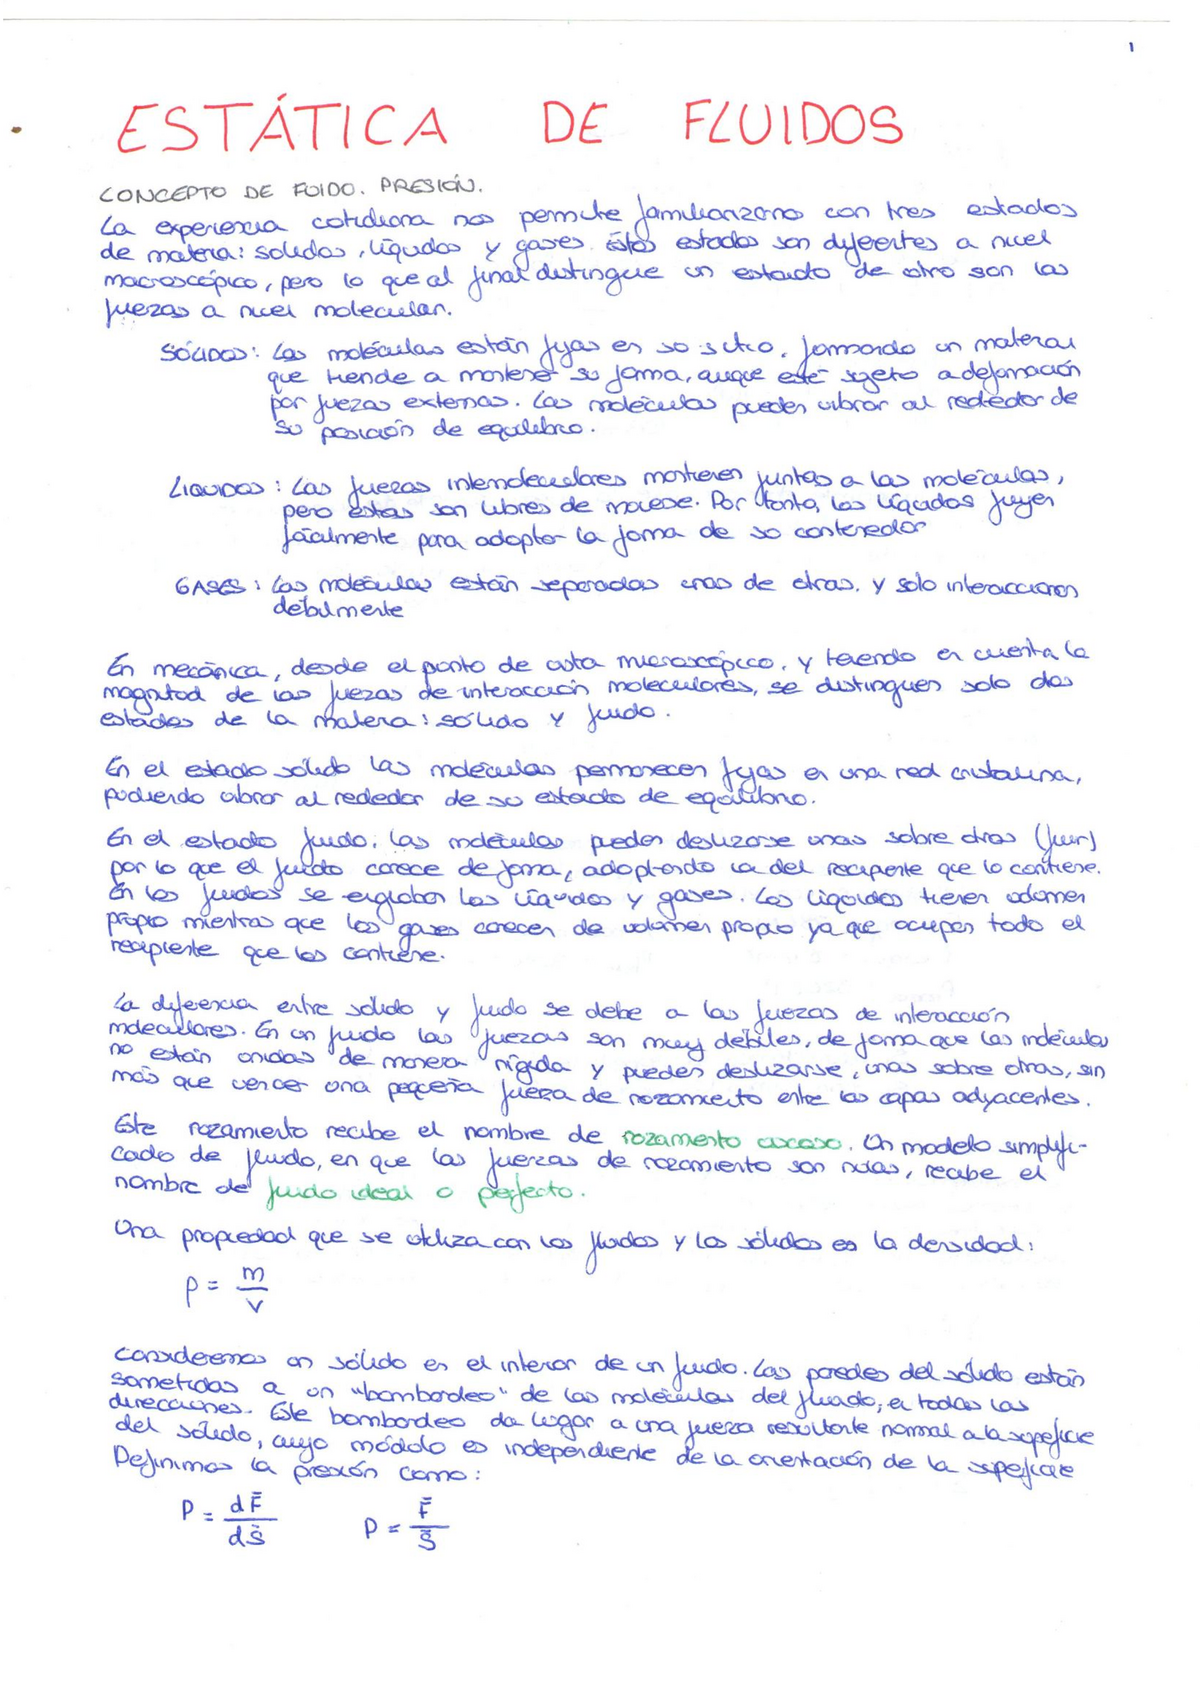 1
ESTÁTICA DE FLUIDOS
CONCEPTO DE FUIDO. PRESIÓN.
La experiencia cotidiana nos permite familiarizarno con tres estados
de materia: solidos, líquidos y gases. Estos estados son diferentes a nivel
macroscópico, pero lo que al final distingue un estado de otro son las
fuerzas a nivel molecular.
SÓLIDOS: Las moléculas están fijas en so sitio, formando un material
que tiende a mantener su forma, aunque esté sujeto a deformación
por fuerzas externas. Las moléculas pueden vibrar al rededor de
su posición de equilibrio.
LIQUIDOS: Las fuerzas intermoleculares mantienen juntas a las moléculas,
pero estas son libres de moverse. Por tanto, los líquidos fluyen
fácilmente para adoptar la forma de so contenedor
GASES: Las moléculas están separadas unas de otras, y solo interaccionan
débilmente
En mecánica, desde el punto de vista microscópico, y teniendo en cuenta la
magnitud de las fuerzas de interacción moleculares, se distinguen solo dos
estados de la materia: sólido y fluido.
En el estado sólido las moléculas permanecen fijas en una red cristalina,
pudiendo vibrar al rededor de so estado de equilibrio.
En el estado fluido, las moléculas pueden deslizarse unas sobre otras (fluir)
por lo que el fluido carece de forma, adoptando la del recipiente que lo contiene.
En los fluidos se engloban los líquidos y gases. Los líquidos tienen volumen
propio mientras que los gases carecen de volumen propio ya que ocupan todo el
recipiente que los contiene.
La diferencia entre sólido y fluido se debe a las fuerzas de interacción
moleculares. En un fluido las fuerzas son muy débiles, de forma que las moléculas
no están unidas de manera rígida y pueden deslizarse, unas sobre otras, sin
más que vencer una pequeña fuerza de rozamiento entre las capas adyacentes.
Este rozamiento recibe el nombre de rozamiento viscoso. Un modelo simplifi-
cado de fluido, en que las fuerzas de rozamiento son nulas, recibe el
nombre de fluido ideal o perfecto.
Una propiedad que se utiliza con los fluidos y los sólidos es la densidad:
ρ = m/V
Consideremos un sólido en el interior de un fluido. Las paredes del sólido están
sometidas a un "bombardeo" de las moléculas del fluido, en todas las
direcciones. Este bombardeo da lugar a una fuerza resultante normal a la superficie
del sólido, cuyo módulo es independiente de la orientación de la superficie
Definimos la presión como:
P = dF̄/dS̄ P = F̄/S̄